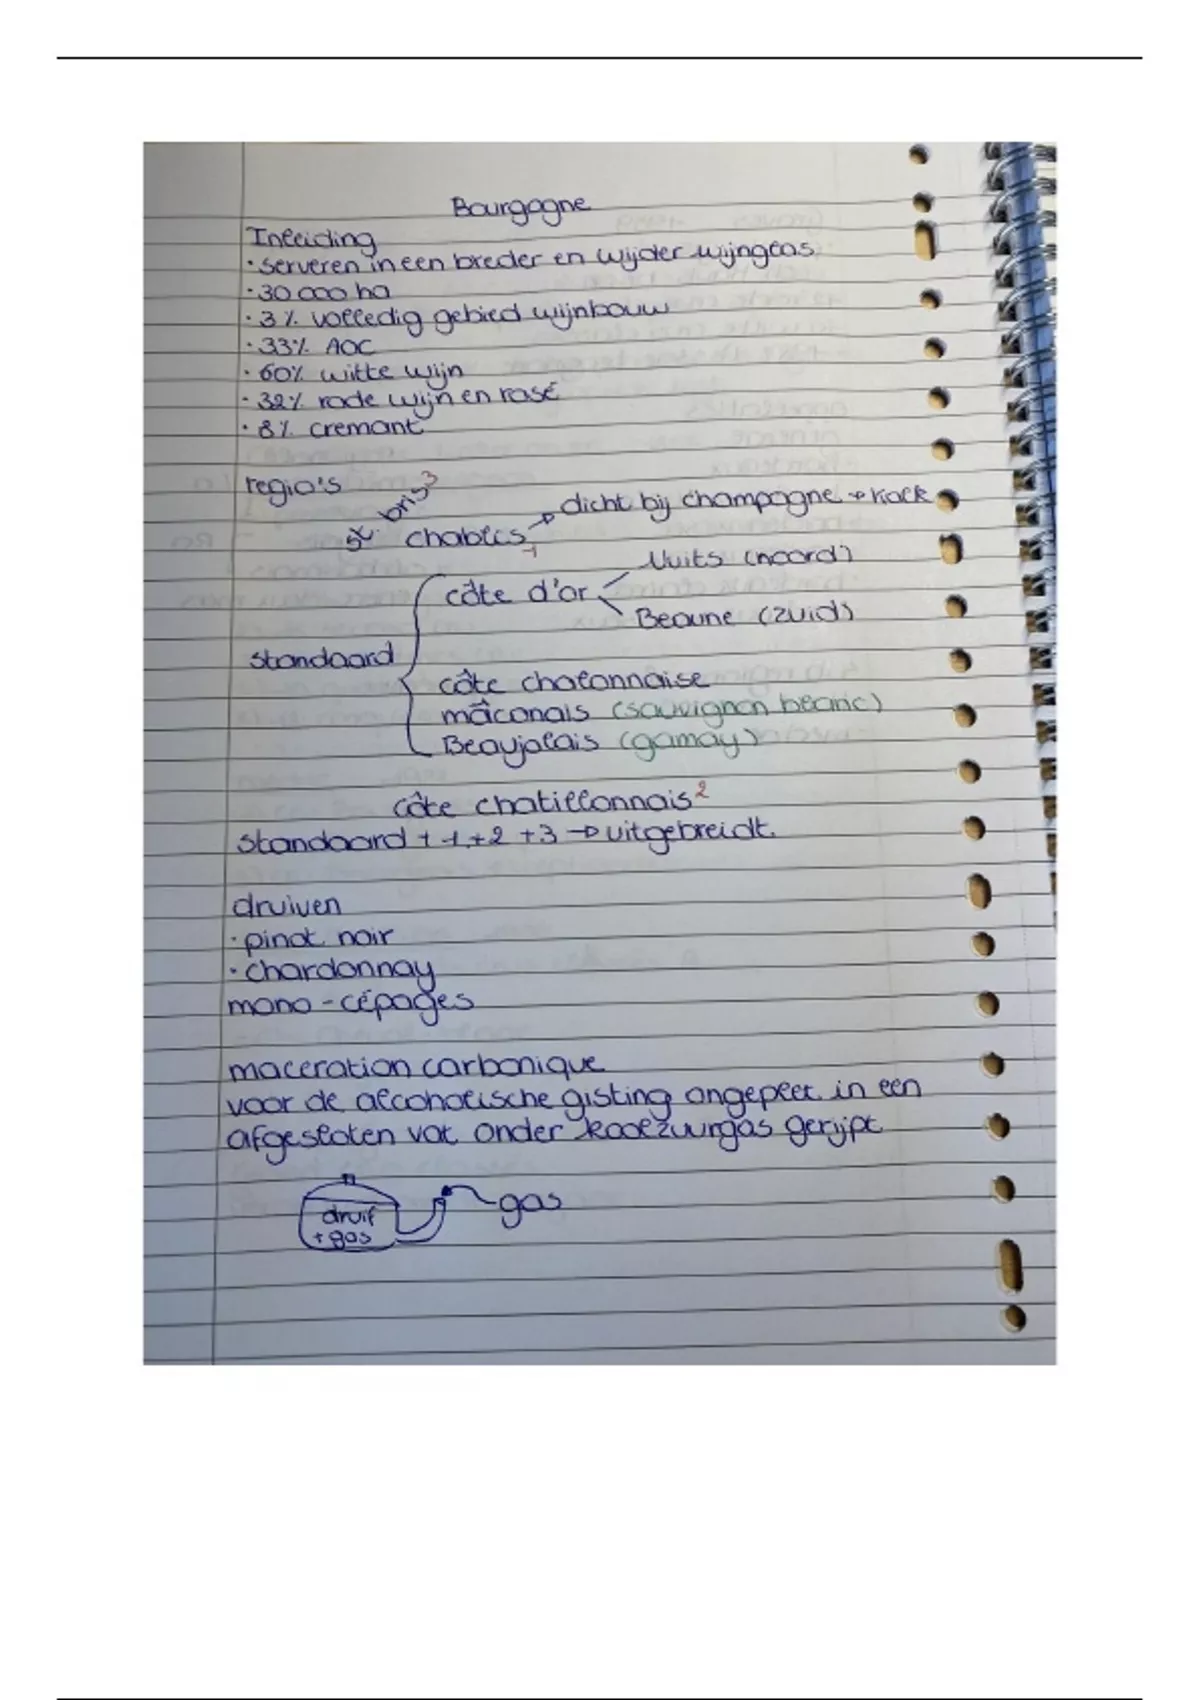 Bourgogne
Inleiding
· serveren in een breder en wijder wijnglas
· 30 000 ha
· 3% volledig gebied wijnbouw
· 33% AOC
· 60% witte wijn
· 32% rode wijn en rosé
· 8% cremant
regio's
St. bris 3
chablis 1 → dicht bij champagne → kalk
Nuits (noord)
côte d'or
Beaune (zuid)
standaard
côte chalonnaise
mâconais (sauvignon blanc)
Beaujolais (gamay)
côte chatillonnais 2
standaard + 1 + 2 + 3 → uitgebreidt.
druiven
· pinot noir
· chardonnay
mono-cépages
maceration carbonique
voor de alcoholische gisting ongeplet in een
afgesloten vat onder koolzuurgas gerijpt
druif
+ gas
gas